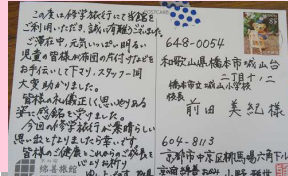 この度は修学旅行にて当館を
ご利用いただき、誠に有難うございました。
ご滞在中、元気いっぱい明るい
児童の皆様がお布団の片付けなどを
お手伝いして下さり、スタッフ一同
大変助かりました。
皆様の礼儀正しく思いやりある
姿に感銘を受けました。
今回の修学旅行が素晴らしい
思い出となりましたら幸いです。
皆様のご健康とこれからのご成長を
心よりお祈り
648-0054
和歌山県橋本市城山台
二丁目十二
橋本市立城山小学校
校長
前田美紀様
604-8113
京都市中京区柳馬場六角下ル
綿善旅館
小野雅世